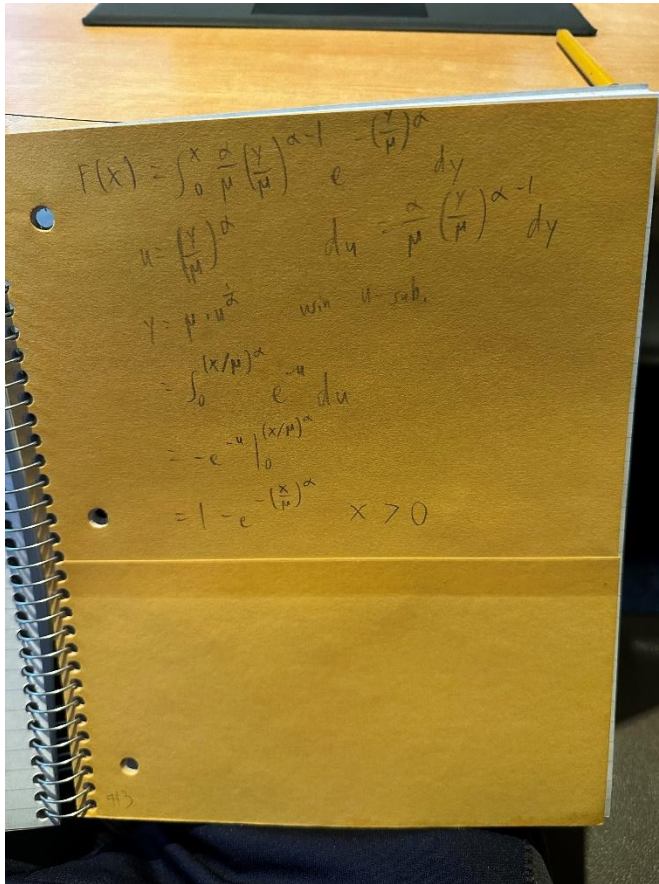 F(x) = ∫₀ˣ α/μ (y/μ)^(α-1) e^(-(y/μ)^α) dy
u = (y/μ)^α du = α/μ (y/μ)^(α-1) dy
y = μ · u^(1/α) win u-sub.
= ∫₀^((x/μ)^α) e^(-u) du
= -e^(-u) |₀^((x/μ)^α)
= 1 - e^(-(x/μ)^α) x > 0
#3